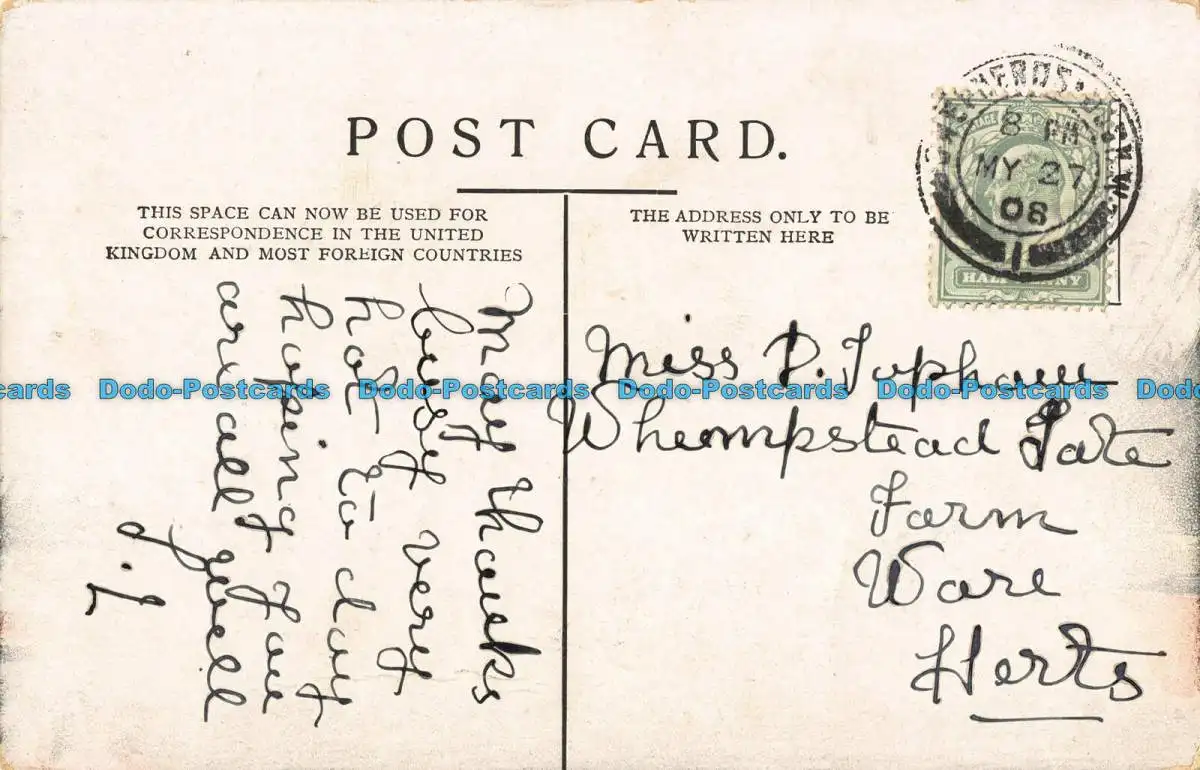 POST CARD.
THIS SPACE CAN NOW BE USED FOR
CORRESPONDENCE IN THE UNITED
KINGDOM AND MOST FOREIGN COUNTRIES
THE ADDRESS ONLY TO BE
WRITTEN HERE
8 PM
MY 27
08
1
HALFPENNY
Many thanks
lousy very
hot to day
hoping you
are all well
Miss D. Topham
Whempstead Gate
Farm
Ware
Herts
Dodo-Postcards Dodo-Postcards Dodo-Postcards Dodo-Postcards Dodo